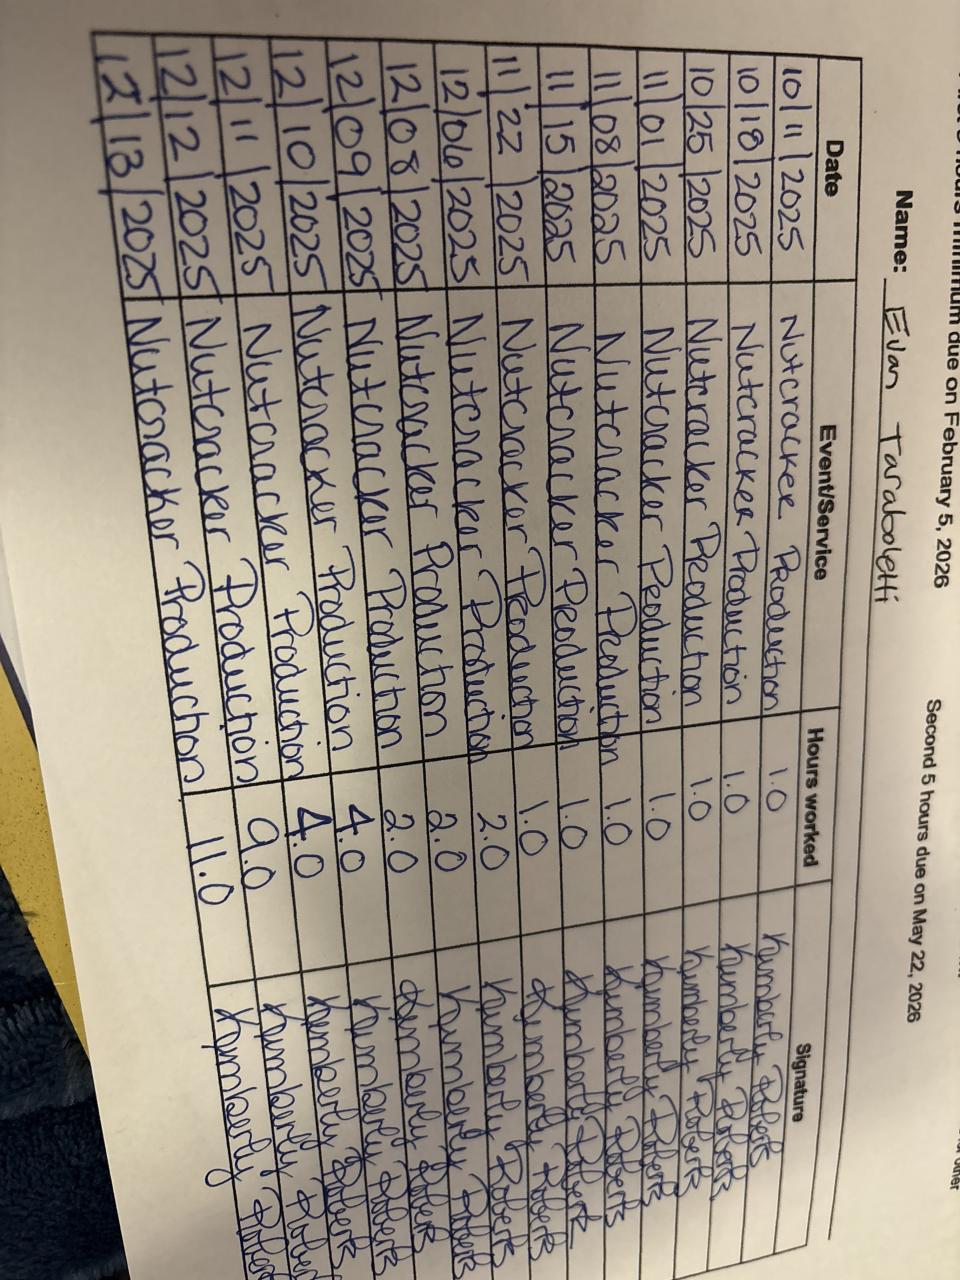 hours minimum due on February 5, 2026 Second 5 hours due on May 22, 2026
Name: Evan Taraboletti
Date Event/Service Hours worked Signature
10/11/2025 Nutcracker Production 1.0 Kymberly Roberts
10/18/2025 Nutcracker Production 1.0 Kymberly Roberts
10/25/2025 Nutcracker Production 1.0 Kymberly Roberts
11/01/2025 Nutcracker Production 1.0 Kymberly Roberts
11/08/2025 Nutcracker Production 1.0 Kymberly Roberts
11/15/2025 Nutcracker Production 1.0 Kymberly Roberts
11/22/2025 Nutcracker Production 1.0 Kymberly Roberts
12/06/2025 Nutcracker Production 2.0 Kymberly Roberts
12/08/2025 Nutcracker Production 2.0 Kymberly Roberts
12/09/2025 Nutcracker Production 2.0 Kymberly Roberts
12/10/2025 Nutcracker Production 4.0 Kymberly Roberts
12/11/2025 Nutcracker Production 4.0 Kymberly Roberts
12/12/2025 Nutcracker Production 9.0 Kymberly
12/13/2025 Nutcracker Production 11.0 Kymberly